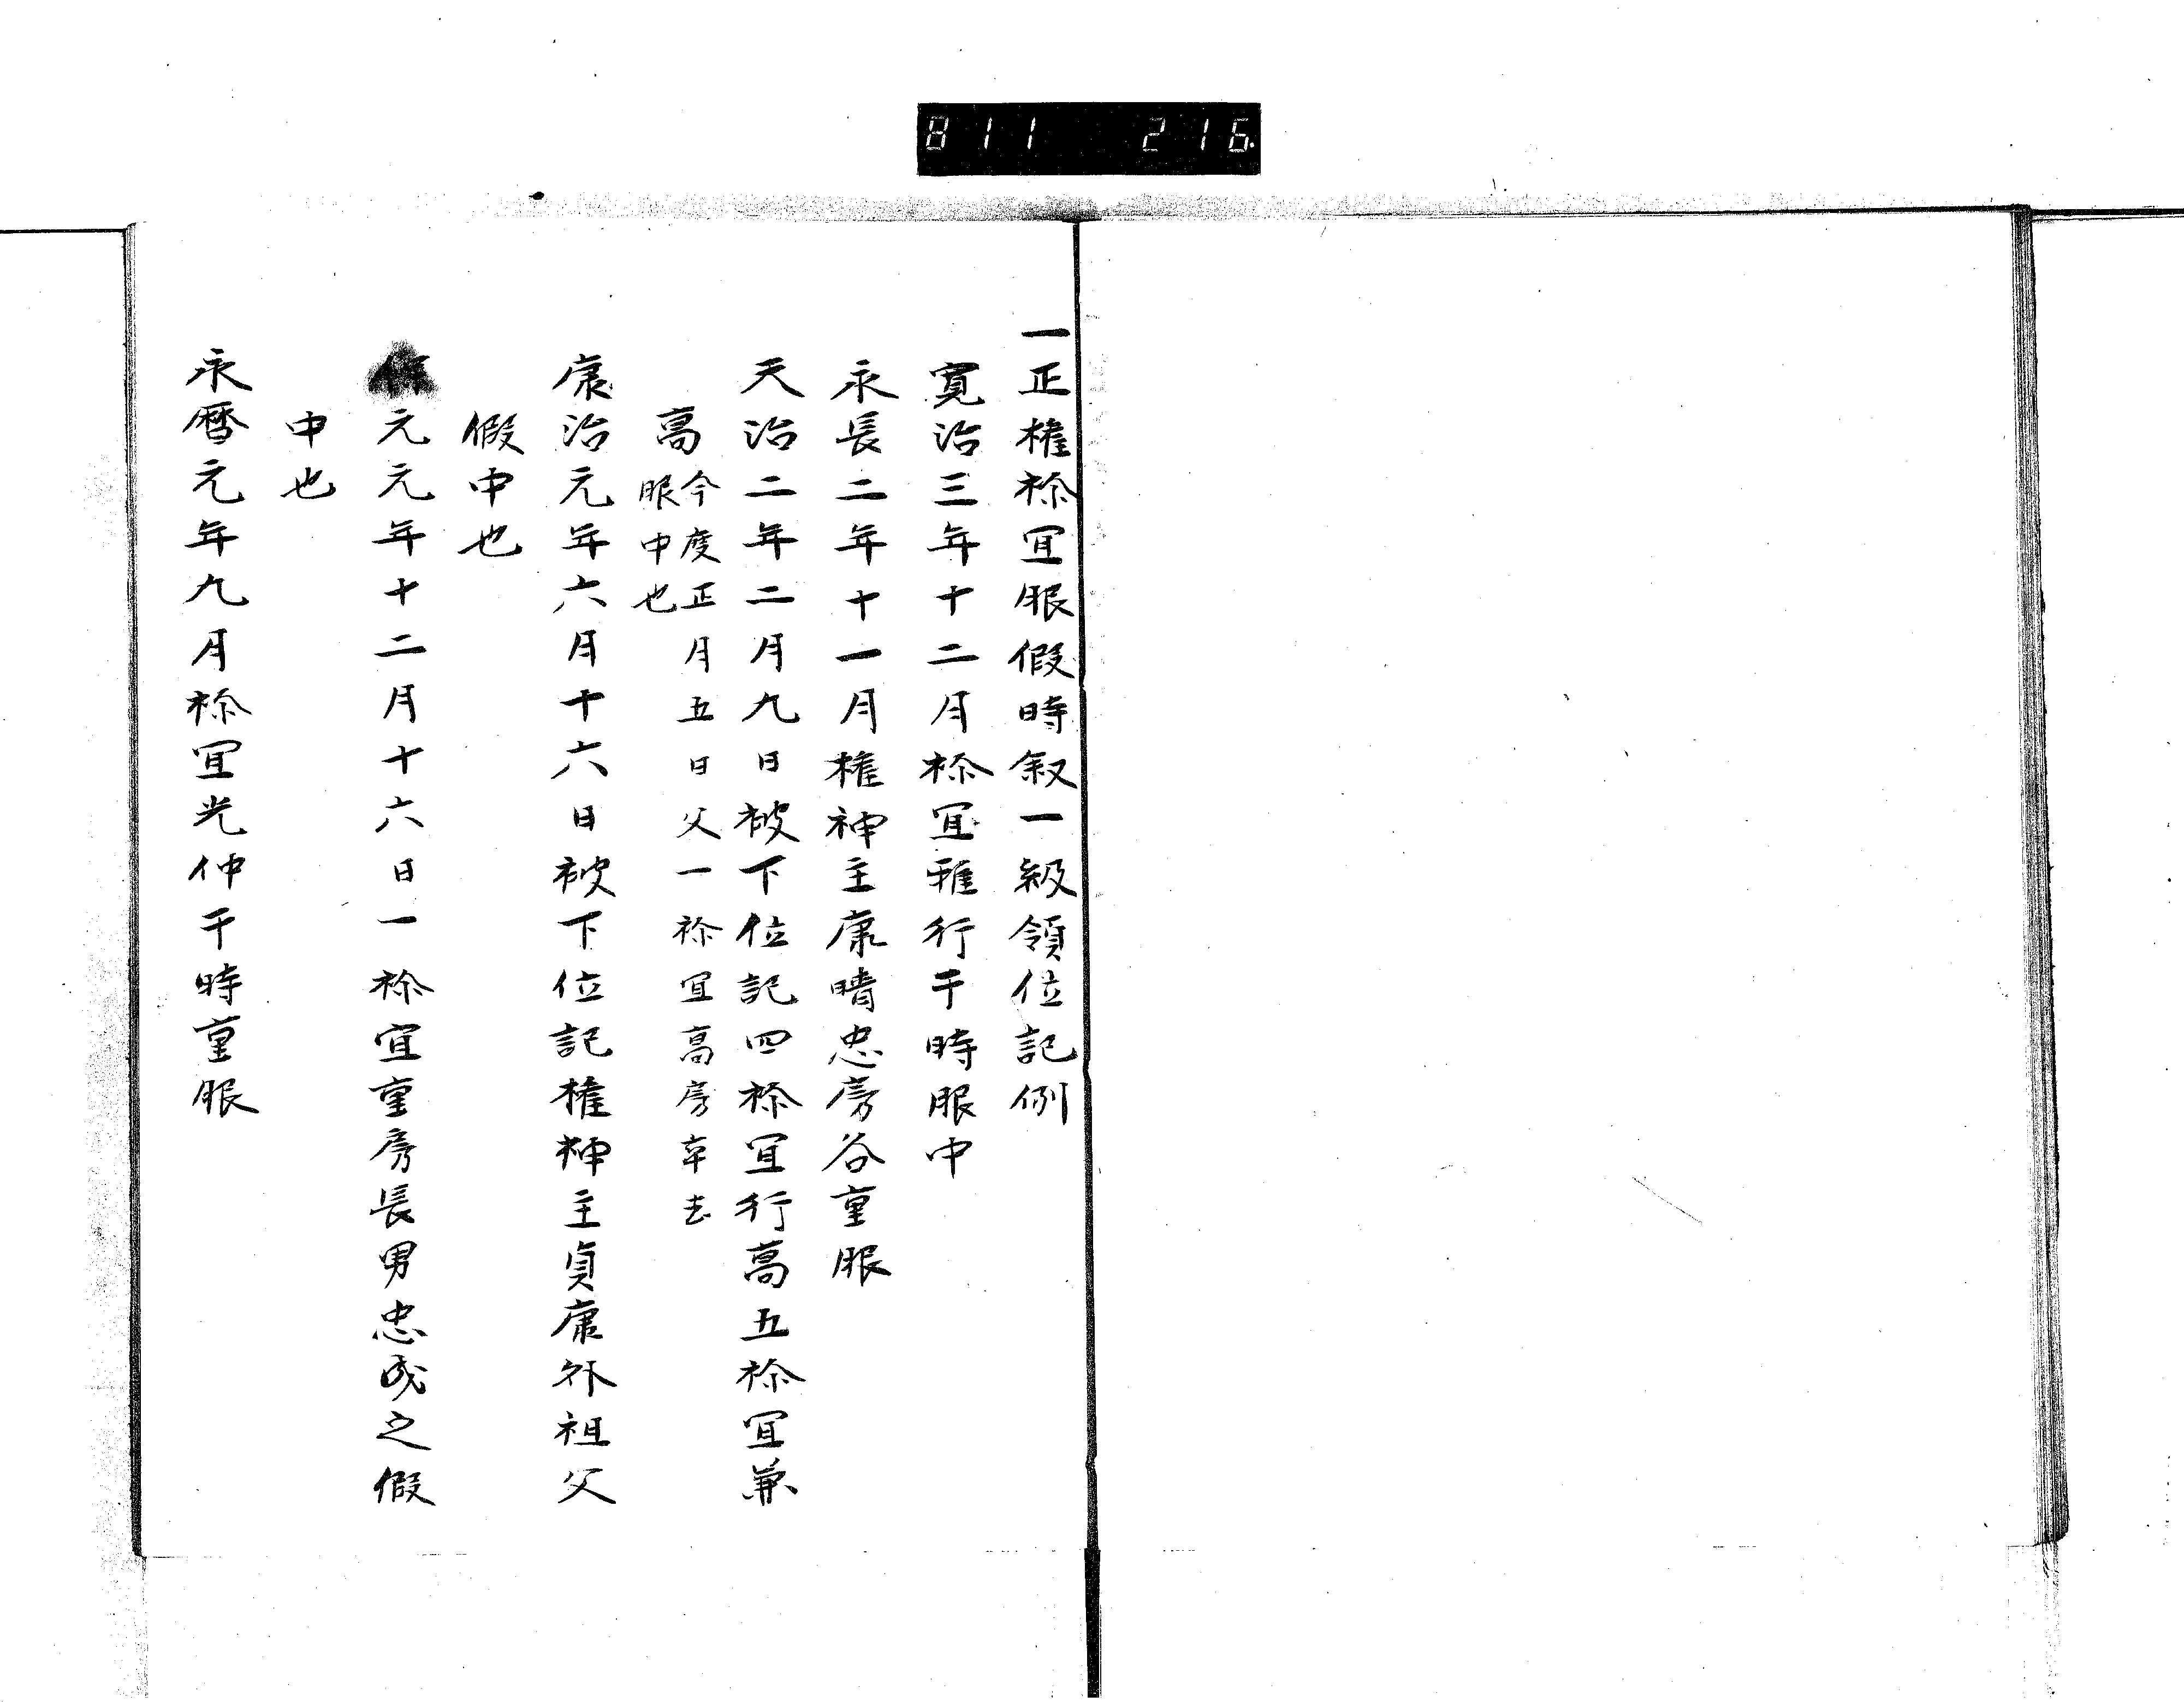 811 216
一正権祢冝服假時叙一級領位記例
寛治三年十二月祢冝雅行于時服中
永長二年十一月権神主康晴忠房谷重服
天治二年二月九日被下位記四祢冝行高五祢冝兼
高今度正月五日父一祢冝高房卒去
服中也
康治元年六月十六日被下位記権神主貞康外祖父
假中也
元元年十二月十六日一祢宜重房長男忠成之假
中也
永暦元年九月祢冝光仲于時重服